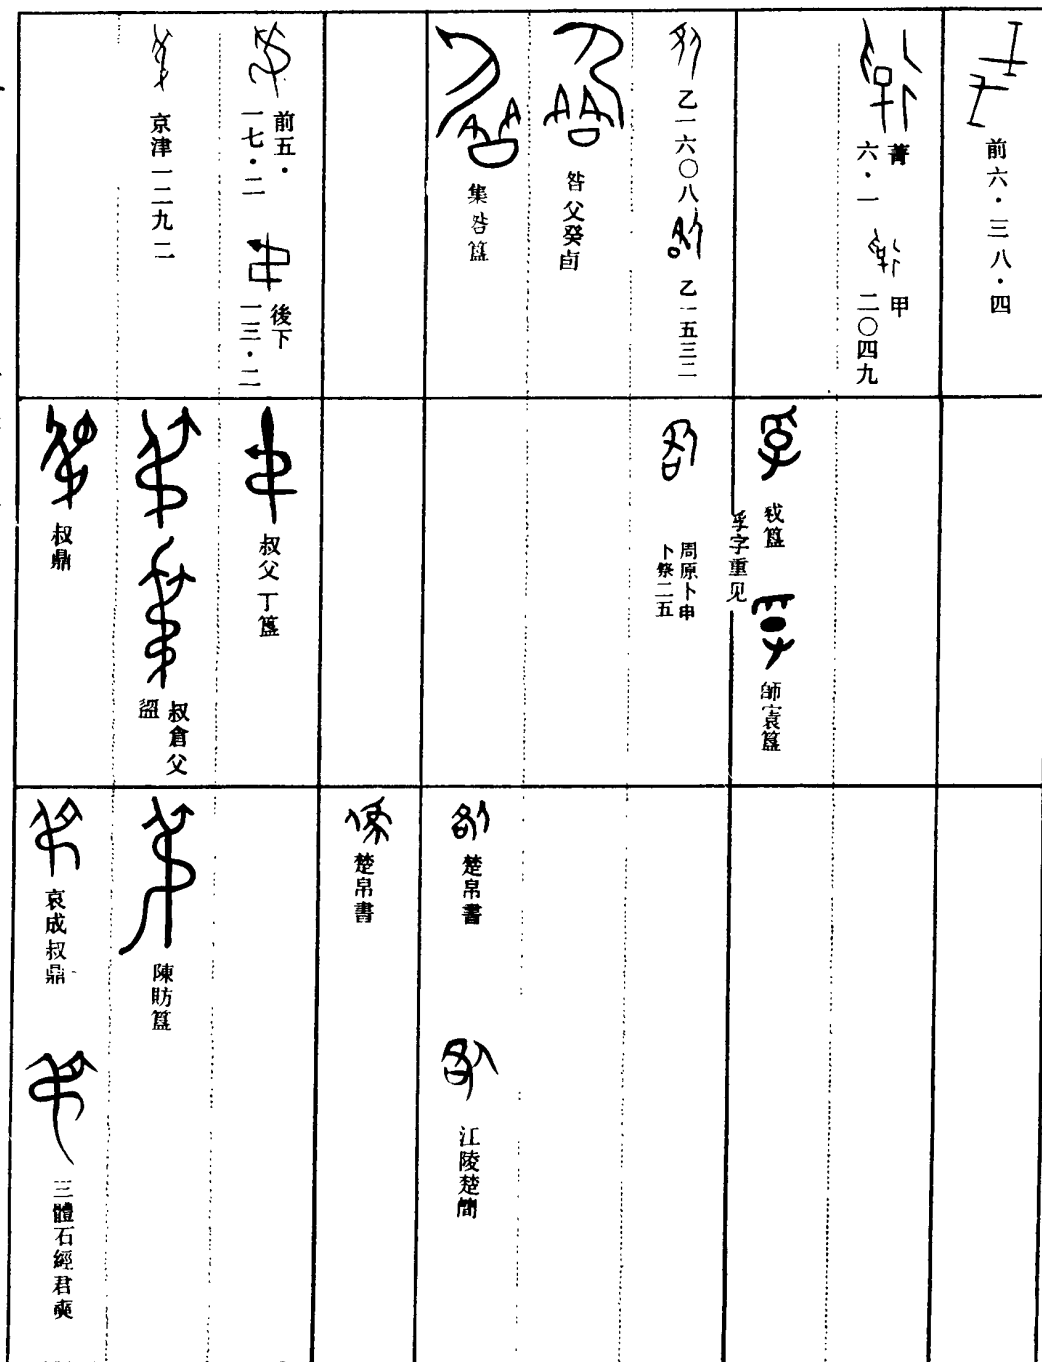 前六·三八·四
菁
六·一
甲
二〇四九
乙一六〇八
乙一五三二
咎父癸卣
集咎簋
前五·
一七·二
後下
一三·二
京津一二九二
簋
孚字重见
師㝨簋
周原卜甲
卜祭二五
叔父丁簋
叔倉父
盨
叔鼎
楚帛書
江陵楚簡
楚帛書
陳肪簋
哀成叔鼎
三體石經君奭